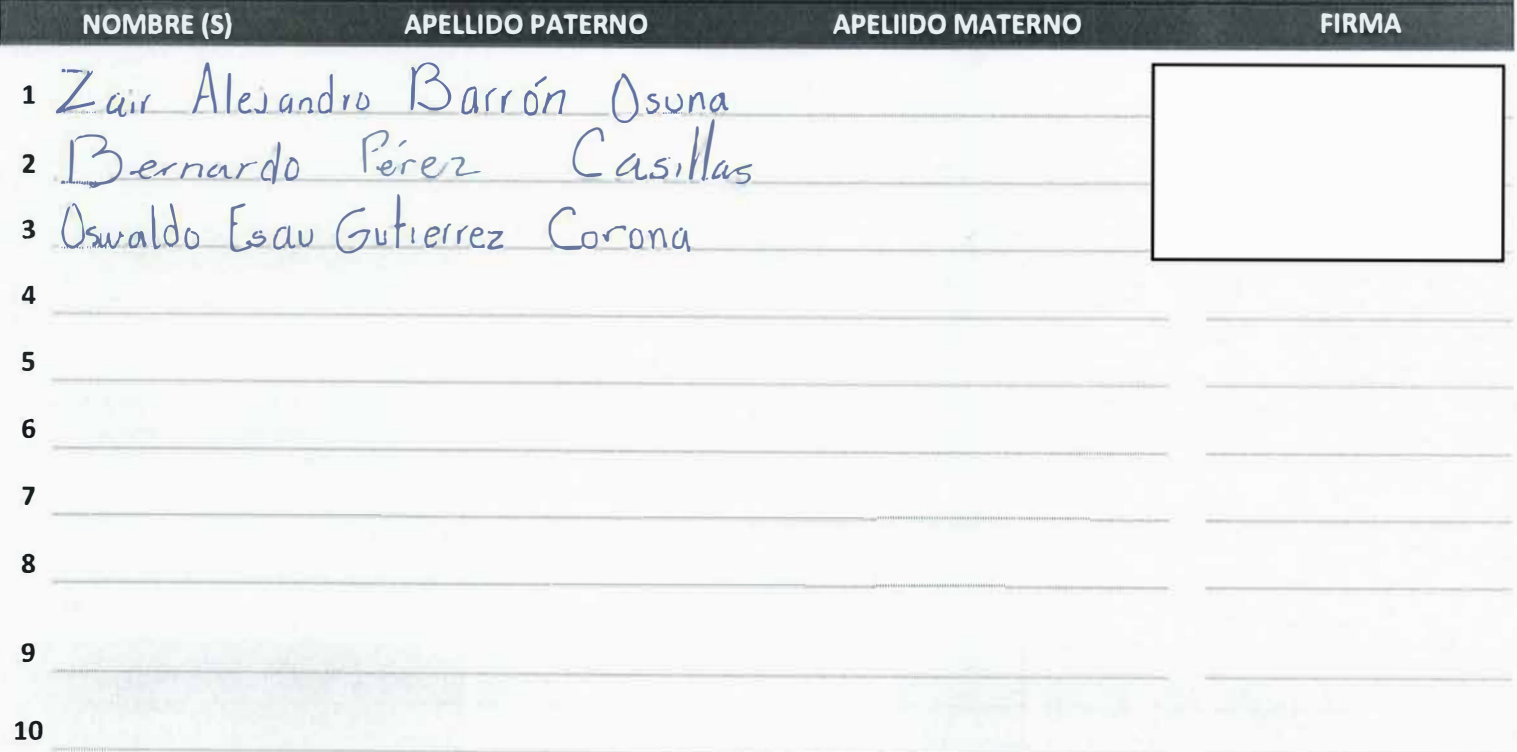 NOMBRE (S) APELLIDO PATERNO APELIIDO MATERNO FIRMA
1 Zair Alejandro Barrón Osuna
2 Bernardo Pérez Casillas
3 Oswaldo Esau Gutierrez Corona
4
5
6
7
8
9
10